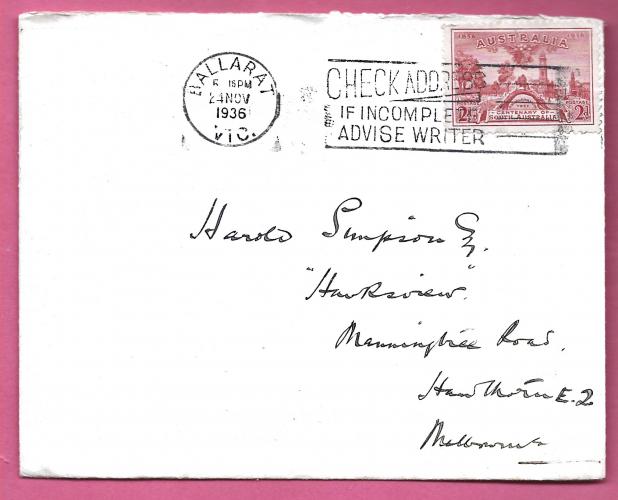 BALLARAT
5 15PM
24 NOV
1936
VIC.
CHECK ADDRESS
IF INCOMPLE
ADVISE WRITER
1836 AUSTRALIA 1936
POSTAGE
2D CENTENARY OF SOUTH AUSTRALIA 2D
Harold Simpson Esq.
"Hawksview"
Manningtree Road.
Hawthorn E.2
Melbourne